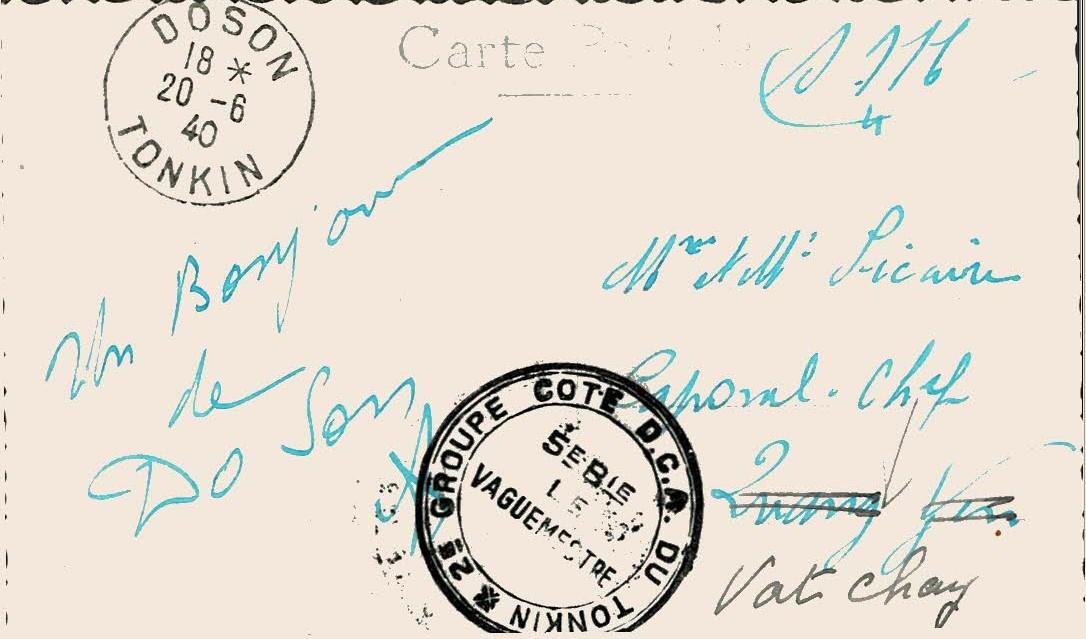 DOSON
18 *
20 -6
40
TONKIN
Carte Postale
S.M
Un Bonjour
de
DO Son
Mme et Mr Sicaire
Caporal-Chef
Quang Yen
Vat chay
2E GROUPE COTE D.C.A. DU TONKIN *
5E BIE
LE
VAGUEMESTRE